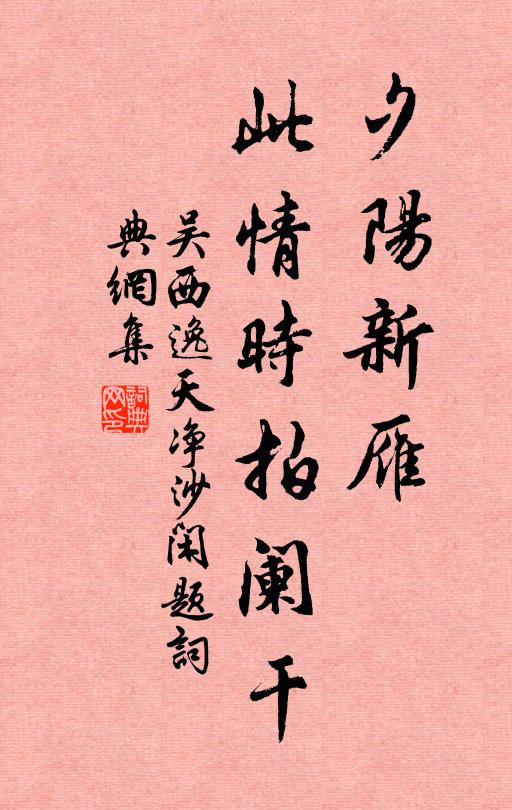 夕陽新雁
此情時拍闌干
吴西逸天净沙閑題詞
典網集
詞典
网印